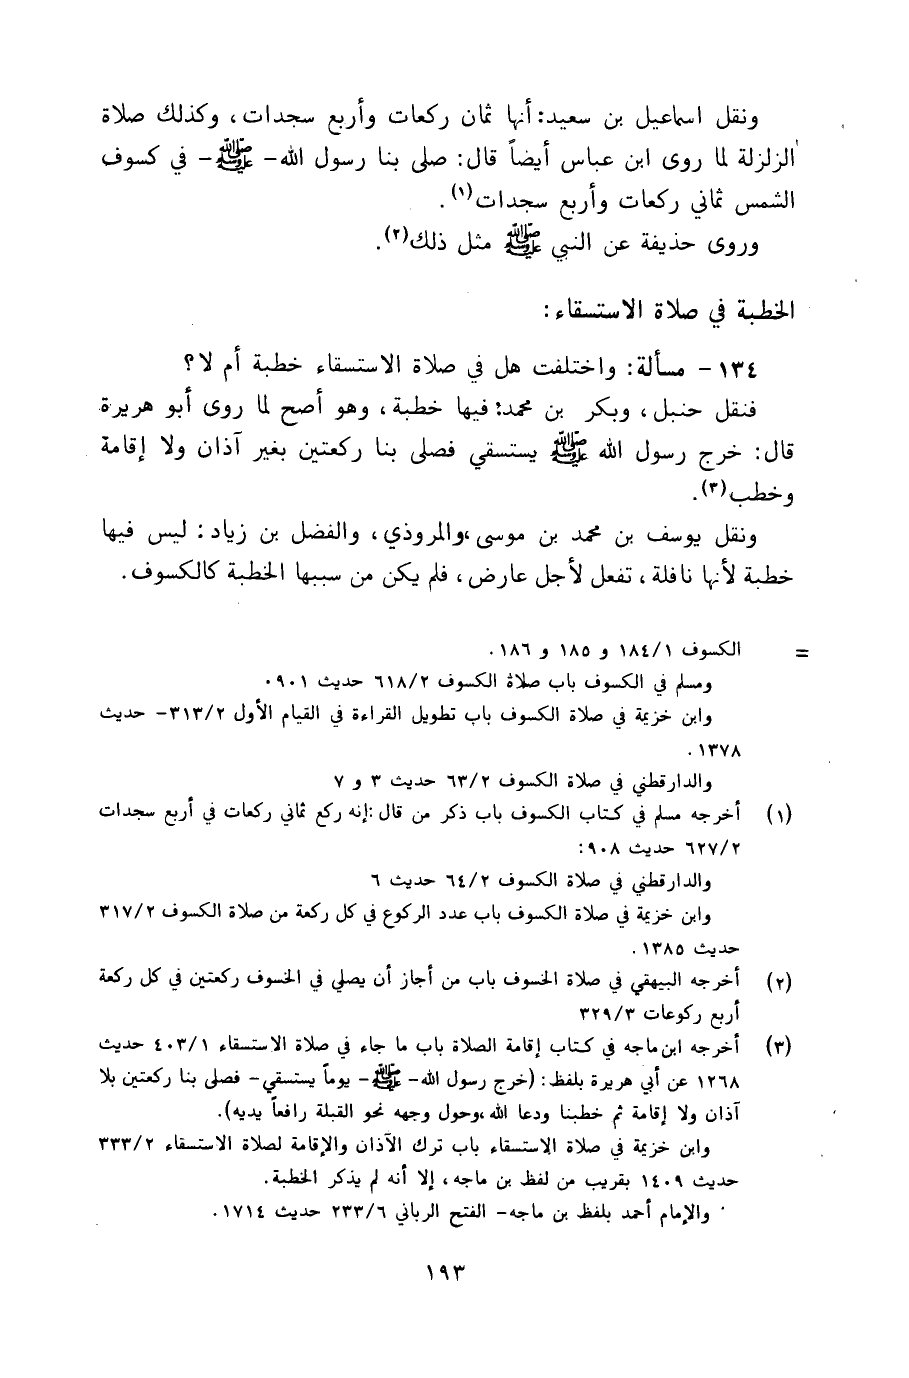 ونقل اسماعيل بن سعيد: أنها ثمان ركعات وأربع سجدات، وكذلك صلاة
الزلزلة لما روى ابن عباس أيضاً قال: صلى بنا رسول الله- ﷺ- في كسوف
الشمس ثماني ركعات وأربع سجدات(١).
وروى حذيفة عن النبي ﷺ مثل ذلك(٢).
الخطبة في صلاة الاستسقاء:
١٣٤- مسألة: واختلفت هل في صلاة الاستسقاء خطبة أم لا؟
فنقل حنبل، وبكر بن محمد: فيها خطبة، وهو أصح لما روى أبو هريرة
قال: خرج رسول الله ﷺ يستسقي فصلى بنا ركعتين بغير آذان ولا إقامة
وخطب(٣).
ونقل يوسف بن محمد بن موسى، والمروذي، والفضل بن زياد: ليس فيها
خطبة لأنها نافلة، تفعل لأجل عارض، فلم يكن من سببها الخطبة كالكسوف.
= الكسوف ١/ ١٨٤ و ١٨٥ و ١٨٦.
ومسلم في الكسوف باب صلاة الكسوف ٢/ ٦١٨ حديث ٩٠١.
وابن خزيمة في صلاة الكسوف باب تطويل القراءة في القيام الأول ٢/ ٣١٣- حديث
١٣٧٨.
والدارقطني في صلاة الكسوف ٢/ ٦٣ حديث ٣ و ٧
(١) أخرجه مسلم في كتاب الكسوف باب ذكر من قال: إنه ركع ثماني ركعات في أربع سجدات
٢/ ٦٢٧ حديث ٩٠٨:
والدارقطني في صلاة الكسوف ٢/ ٦٤ حديث ٦
وابن خزيمة في صلاة الكسوف باب عدد الركوع في كل ركعة من صلاة الكسوف ٢/ ٣١٧
حديث ١٣٨٥.
(٢) أخرجه البيهقي في صلاة الخسوف باب من أجاز أن يصلي في الخسوف ركعتين في كل ركعة
أربع ركوعات ٣/ ٣٢٩
(٣) أخرجه ابن ماجه في كتاب إقامة الصلاة باب ما جاء في صلاة الاستسقاء ١/ ٤٠٣ حديث
١٢٦٨ عن أبي هريرة بلفظ: (خرج رسول الله- ﷺ- يوماً يستسقي- فصلى بنا ركعتين بلا
آذان ولا إقامة ثم خطبنا ودعا الله، وحول وجهه نحو القبلة رافعاً يديه).
وابن خزيمة في صلاة الاستسقاء باب ترك الآذان والإقامة لصلاة الاستسقاء ٢/ ٣٣٣
حديث ١٤٠٩ بقريب من لفظ بن ماجه، إلا أنه لم يذكر الخطبة.
والإمام أحمد بلفظ بن ماجه- الفتح الرباني ٦/ ٢٣٣ حديث ١٧١٤.
١٩٣